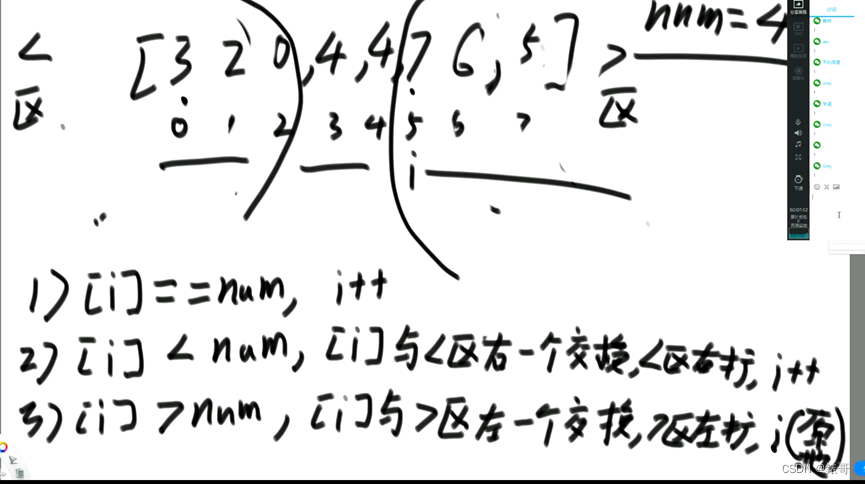 num=4
< [3 2 0,4,4,7 6,5] >
区 0 1 2 3 4 5 6 7 区
i
1) [i]==num, i++
2) [i] < num, [i]与<区右一个交换,<区右扩, i++
3) [i] >num, [i]与>区左一个交换, >区左扩, i(原地)